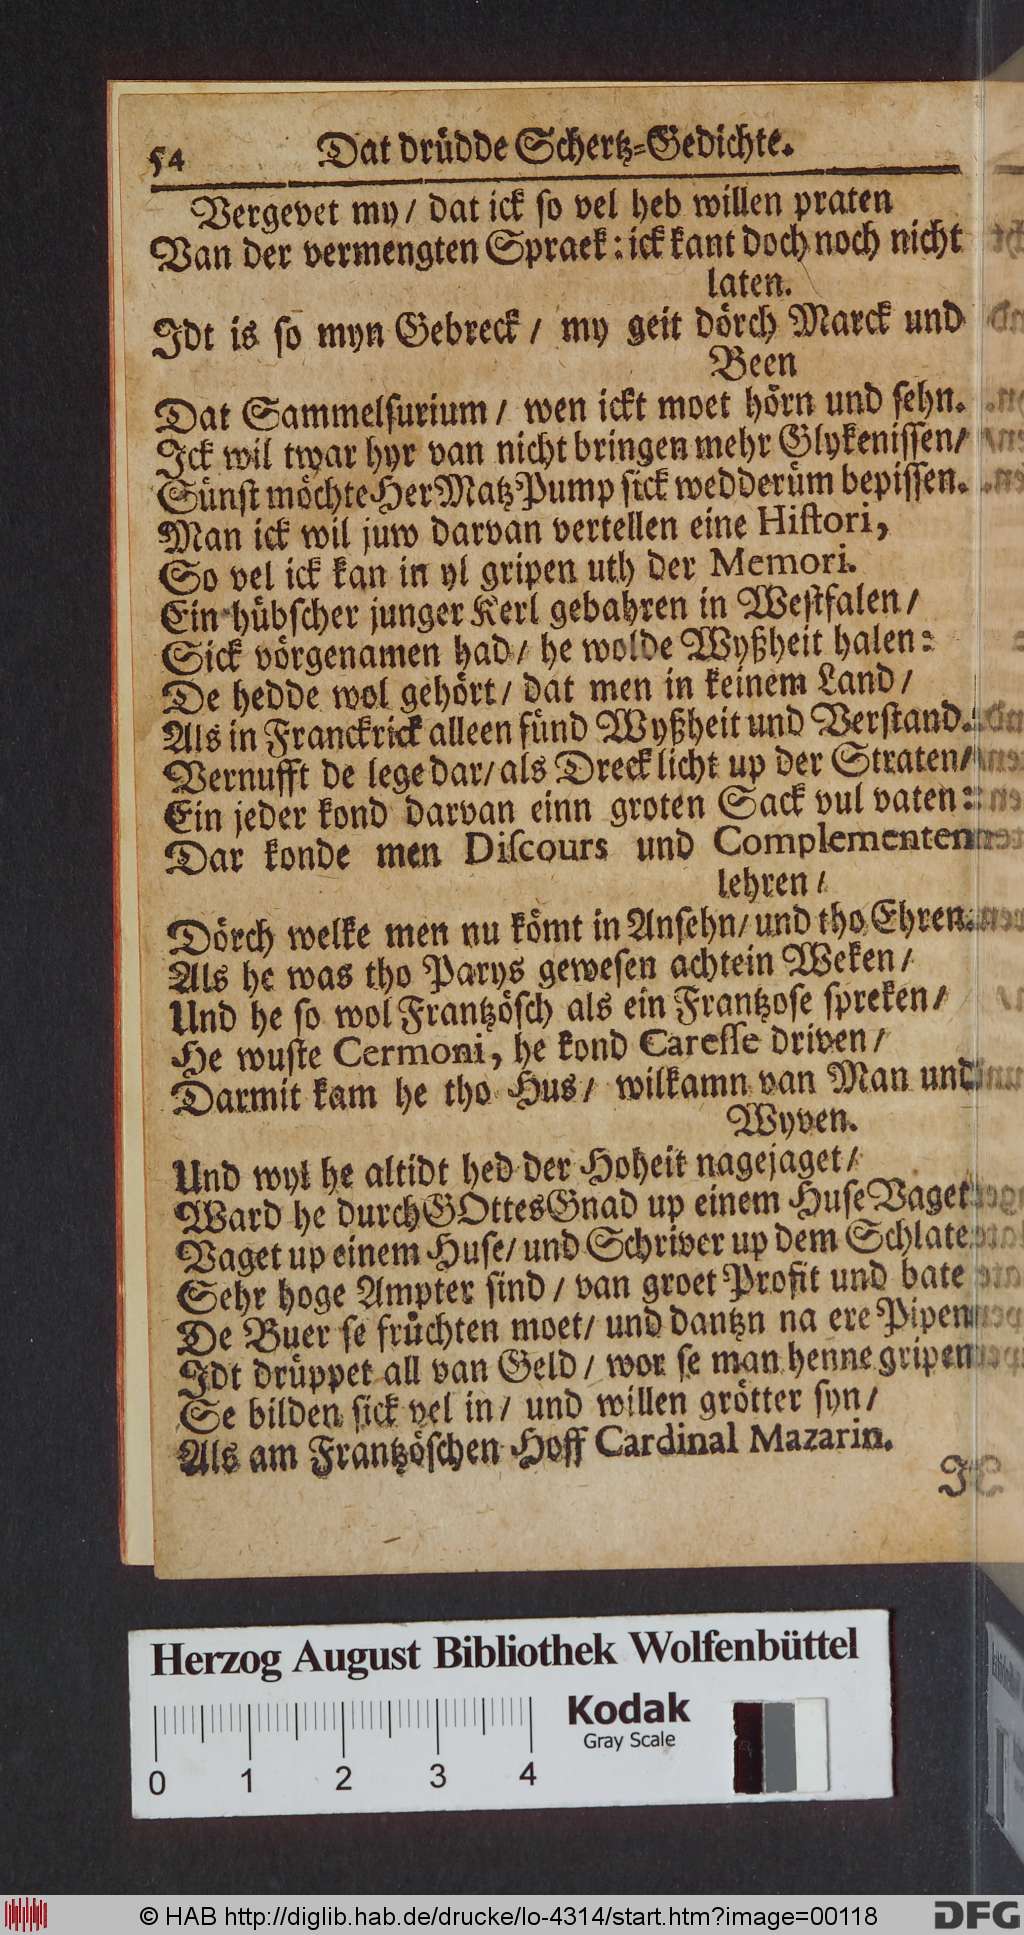 54 Dat drüdde Schertz-Gedichte.
Vergevet my/ dat ick so vel heb willen praten
Van der vermengten Spraek: ick kant doch noch nicht
laten.
Idt is so myn Gebreck/ my geit dörch Marck und
Been
Dat Sammelsurium/ wen ickt moet hörn und sehn.
Ick wil twar hyr van nicht bringen mehr Glykenissen/
Sünst möchte Her Matz Pump sick wedderüm bepissen.
Man ick wil juw darvan vertellen eine Histori,
So vel ick kan in yl gripen uth der Memori.
Ein hübscher junger Kerl gebahren in Westfalen/
Sick vörgenamen had/ he wolde Wyßheit halen:
De hedde wol gehört/ dat men in keinem Land/
Als in Franckrick alleen fünd Wyßheit und Verstand.
Vernufft de lege dar/ als Dreck licht up der Straten/
Ein jeder kond darvan einn groten Sack vul vaten:
Dar konde men Discours und Complementen
lehren/
Dörch welke men nu kömt in Ansehn/ und tho Ehren.
Als he was tho Parys gewesen achtein Weken/
Und he so wol Frantzösch als ein Frantzose spreken/
He wuste Cermoni, he kond Caresse driven/
Darmit kam he tho Hus/ wilkamn van Man und
Wyven.
Und wyl he altidt hed der Hoheit nagejaget/
Ward he durch GOttes Gnad up einem Huse Vaget
Vaget up einem Huse/ und Schriver up dem Schlate
Sehr hoge Ampter sind/ van groet Profit und bate
De Buer se früchten moet/ und dantzn na ere Pipen
Idt drüppet all van Geld/ wor se man henne gripen
Se bilden sick vel in/ und willen grötter syn/
Als am Frantzöschen Hoff Cardinal Mazarin.
Herzog August Bibliothek Wolfenbüttel
Kodak
Gray Scale
0 1 2 3 4
© HAB http://diglib.hab.de/drucke/lo-4314/start.htm?image=00118
DFG